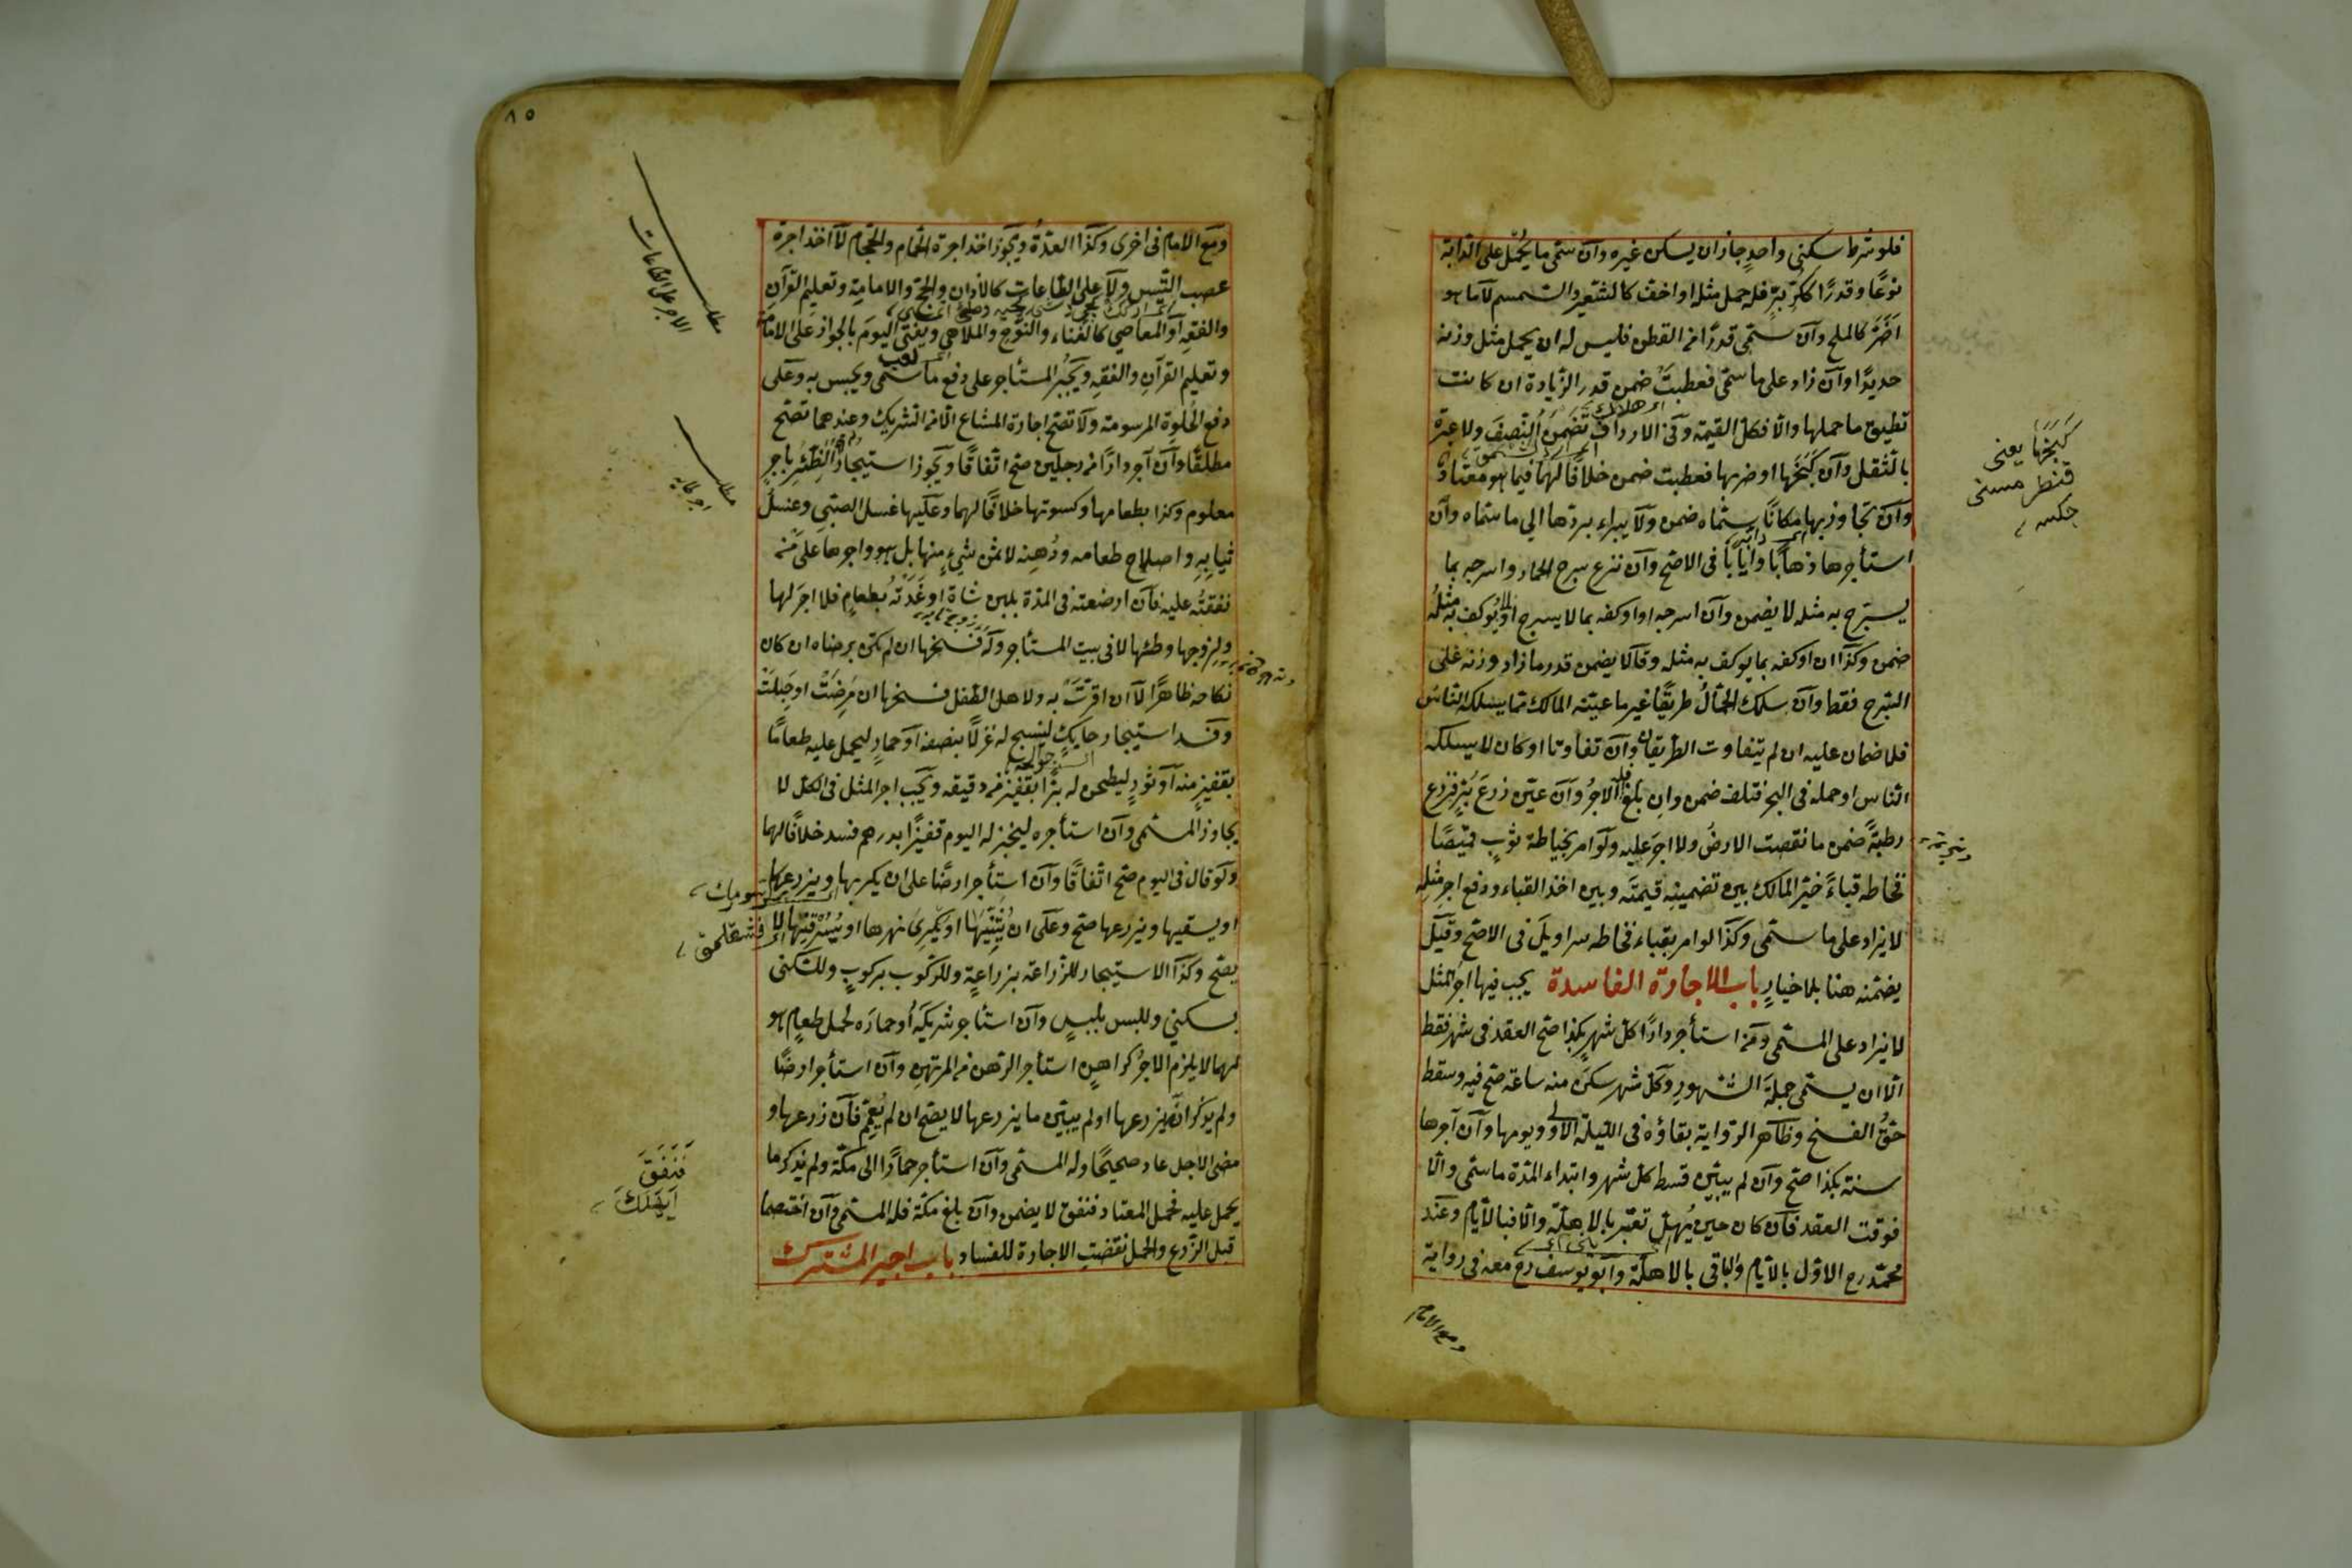 فلو شرط سكنى واحد جاز ان يسكن غيره وان سمّى ما يُحمل على الدابة
نوعًا وقدرًا ككرّ برّ فله حمل مثله او اخف كالشعير والسمسم لا ما هو
اَضَرّ كالملح وان سمّى قدرًا من القطن فليس له ان يحمل مثل وزنه
حديدًا وان زاد على ما سمّى فعطبتْ ضمن قدر الزيادة ان كانت
تطيق ما حملها والا فكل القيمة وفى الارداف تضمن النصف ولا عبرة
بالثقل وان كبحها او ضربها فعطبت ضمن خلافًا لهما فيما هو معتاد
وان تجاوز بها مكانًا سمّاه ضمن ولا يبراء بردّها الى ما سمّاه وان
استأجرها ذهابًا وايابًا فى الاصح وان نزع سرج الحمار واسرجه بما
يسرج به مثله لا يضمن وان اسرجه او اوكفه بما لا يسرج او لا يُوكف به مثلُه
ضمن وكذا ان اوكفه بما يوكف به مثله وقالا يضمن قدر ما زاد وزنه على
السرج فقط وان سلك الحمّالُ طريقًا غير ما عيّنه المالك مما يسلكه الناس
فلا ضمان عليه ان لم يتفاوت الطريقان وان تفاوتا او كان لا يسلكه
الناس او حمله فى البحر فتلف ضمن وان بلغ فله الاجرُ وان عيّن زرعَ بُرّ فزرع
رطبةً ضمن ما نقصت الارضُ ولا اجرَ عليه ولو امر بخياطة ثوبٍ قميصًا
فخاطه قباءً خيّر المالك بين تضمينه قيمتَه وبين اخذ القباء ودفع اجر مثله
لا يزاد على ما سمّى وكذا لو امر بقباء فخاطه سراويلَ فى الاصح وقيل
يضمنه هنا بلا خيارٍ باب الاجارة الفاسدة يجب فيها اجرُ المثل
لا يزاد على المسمّى ومن استأجر دارًا كل شهرٍ بكذا صح العقد فى شهر فقط
الا ان يسمّى جملةَ الشهورِ وكل شهر سكن منه ساعة صح فيه وسقط
حقُّ الفسخ وظاهر الرواية بقاؤه فى الليلة الاولى ويومها وان آجرها
سنة بكذا صح وان لم يبيّن قسط كل شهر وابتداء المدة ما سمّى والا
فوقت العقد فان كان حين يُهلّ تعتبر بالاهلّة والا فبالايّام وعند
محمّد رح الاول بالايّام والباقى بالاهلّة وابو يوسف رح معه فى رواية
ومع الامام
كَبَحَهَا يعنى
جكسه
٨٥
ومع الامام فى اخرى وكذا العدّة ويجوز اخذ اجرة الحمّام والحجّام لا اخذ اجرة
عصب التيس ولا على الطاعات كالاذان والحج والامامة وتعليم القرآن
والفقه او المعاصى كالغناء والنوح والملاهى ويفتى اليوم بالجواز على الامامة
وتعليم القرآن والفقه ويُجبر المستأجر على دفع ما سمّى ويحبس به وعلى
دفع الحُلوة المرسومة ولا تصح اجارة المشاع الا من الشريك وعندهما تصح
مطلقًا وان آجر دارًا من رجلين صح اتفاقًا ويجوز استيجار الظئر باجرٍ
معلوم وكذا بطعامها وكسوتها خلافًا لهما وعليها غسل الصبى وغسل
ثيابه واصلاح طعامه ودُهنه لا ثمن شىءٍ منها بل هو واجرها على مَن
نفقتُه عليه فان ارضعته فى المدة بلبن شاة او غذته بطعامٍ فلا اجرَ لها
ولزوجها وطئها لا فى بيت المستأجر وله فسخها ان لم تكن برضاه ان كان
نكاحه ظاهرًا لا ان اقرّت به ولاهل الطفل فسخها ان مَرِضَتْ او حَبِلَتْ
وفسد استيجار حايكٍ لينسج له غزلًا بنصفه او حمارٍ ليحمل عليه طعامًا
بقفيزٍ منه او ثورٍ ليطحن له برًّا بقفيز من دقيقه ويجب اجر المثل فى الكل لا
يجاوز المسمّى وان استأجره ليخبز له اليوم قفيزًا بدرهم فسد خلافًا لهما
ولو قال فى اليوم صح اتفاقًا وان استأجر ارضًا على ان يكربها ويزرعها
او يسقيها ويزرعها صح وعلى ان يُثنّيها او يكرى نهرها او يُسَرْقِنَها لا
يصح وكذا الاستيجار للزراعة بزراعةٍ وللركوب بركوبٍ وللسكنى
بسكنى وللبس بلبسٍ وان استأجر شريكَه او حمارَه لحمل طعامٍ هو
لهما لا يلزم الاجرُ كراهنٍ استأجر الرهن من المرتهن وان استأجر ارضًا
ولم يذكر انه يزرعها او لم يبيّن ما يزرعها لا يصح ان لم يُعمّم فان زرعها و
مضى الاجل عاد صحيحًا وله المسمى وان استأجر حمارًا الى مكة ولم يذكر ما
يحمل عليه فحمل المعتاد فنفق لا يضمن وان بلغ مكة فله المسمى وان اختصما
قبل الزرع والحمل نقضت الاجارة للفساد باب اجير المشترك
الاجر على الطاعات
فَنَفَقَ